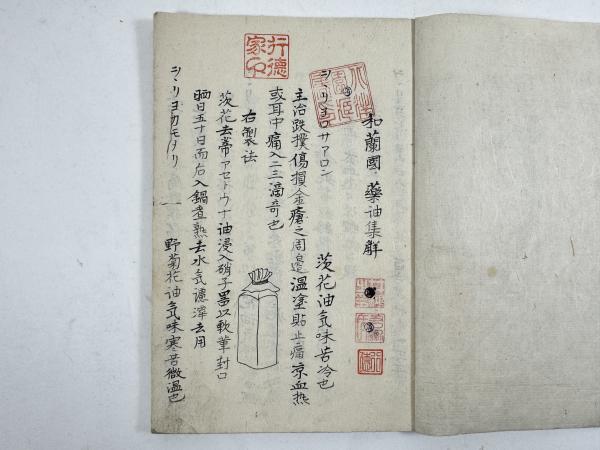 和蘭國 藥油集解
シヽリヨロサアロン 茨花油気味苦冷也
主治跌撲傷損金瘡之周邉温塗貼止痛涼血熱
或耳中痛入二三滴奇也
右製法
茨花去蒂アセトウナ油浸入硝子器以軟革封口
晒日五十日而后入鍋煮熟去水気濾滓去用
シヽリヨカモメリ 野菊花油気味寒苦微温也
行德家印